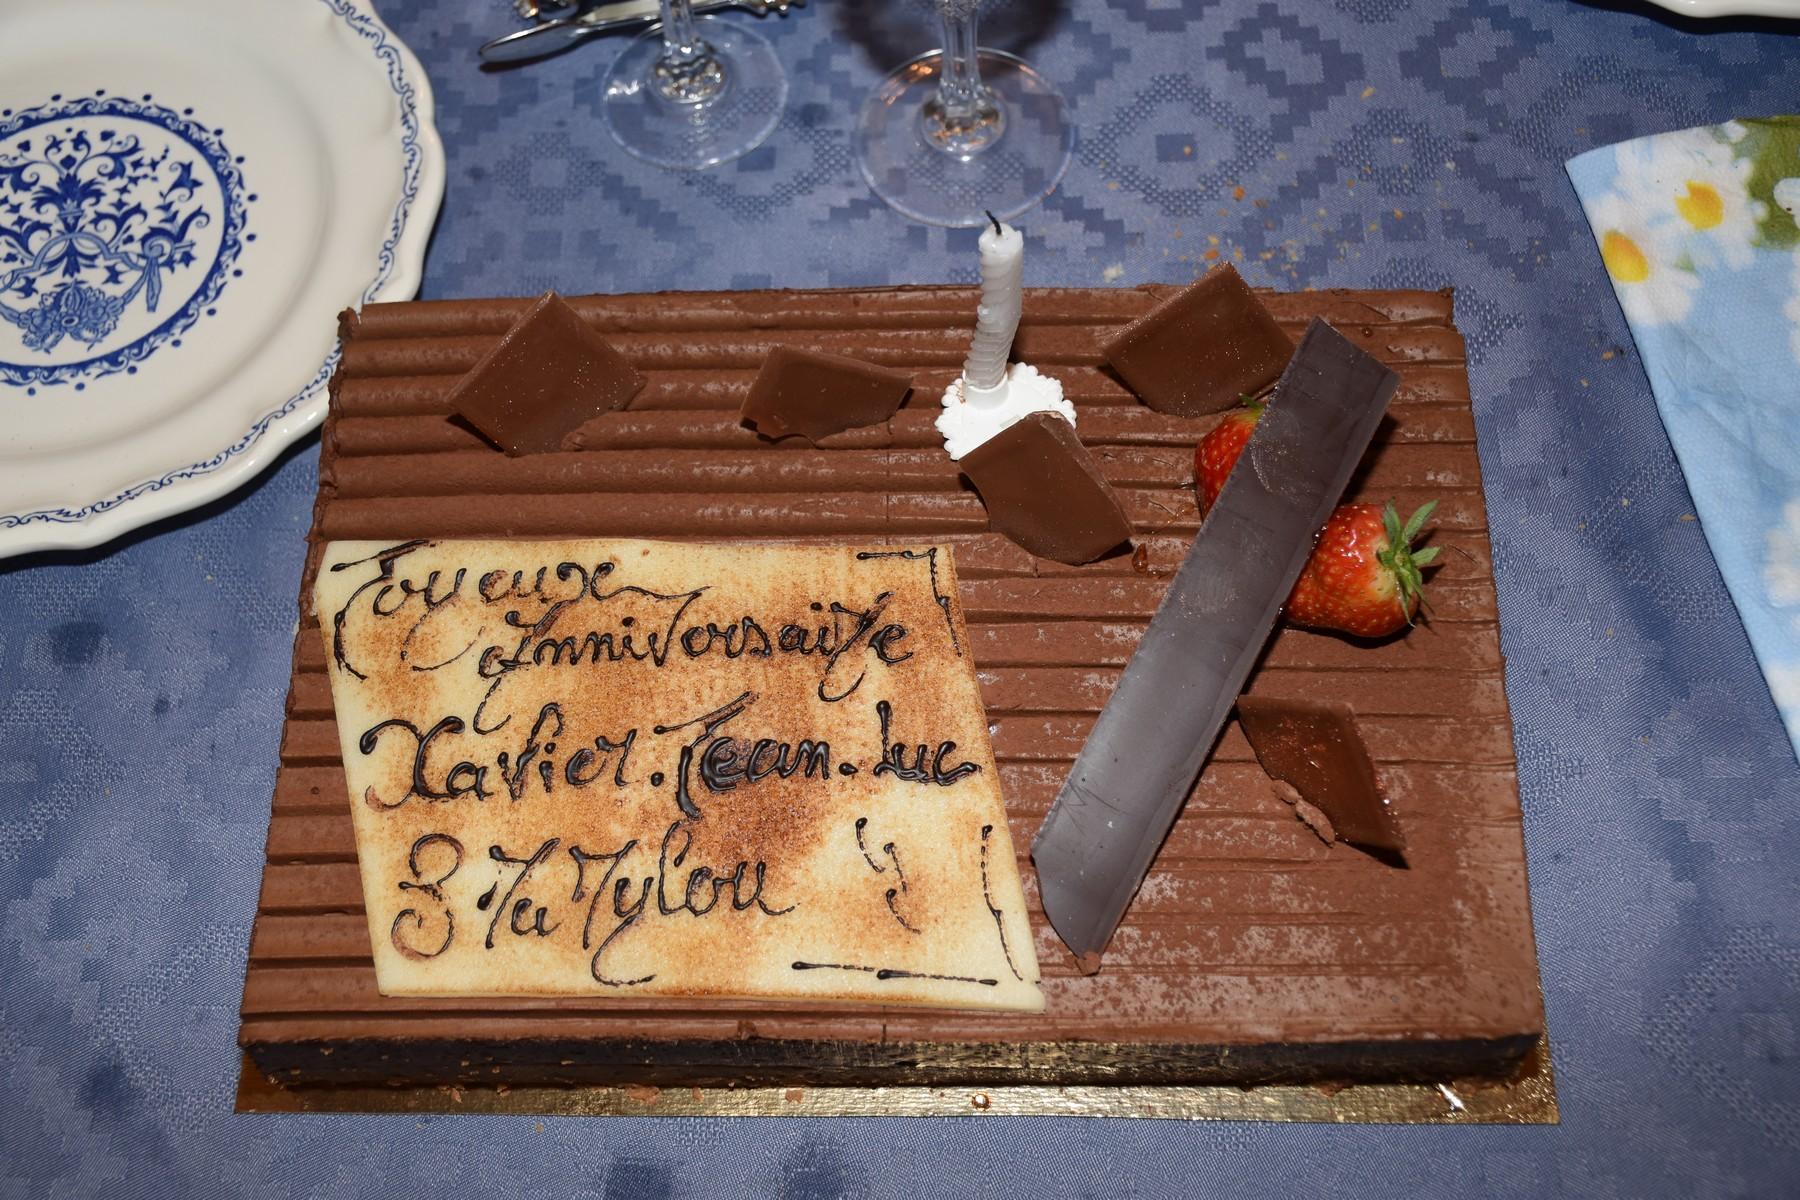 Joyeuse
Anniversaire
Xavier. Jean. Luc
& Mamylou